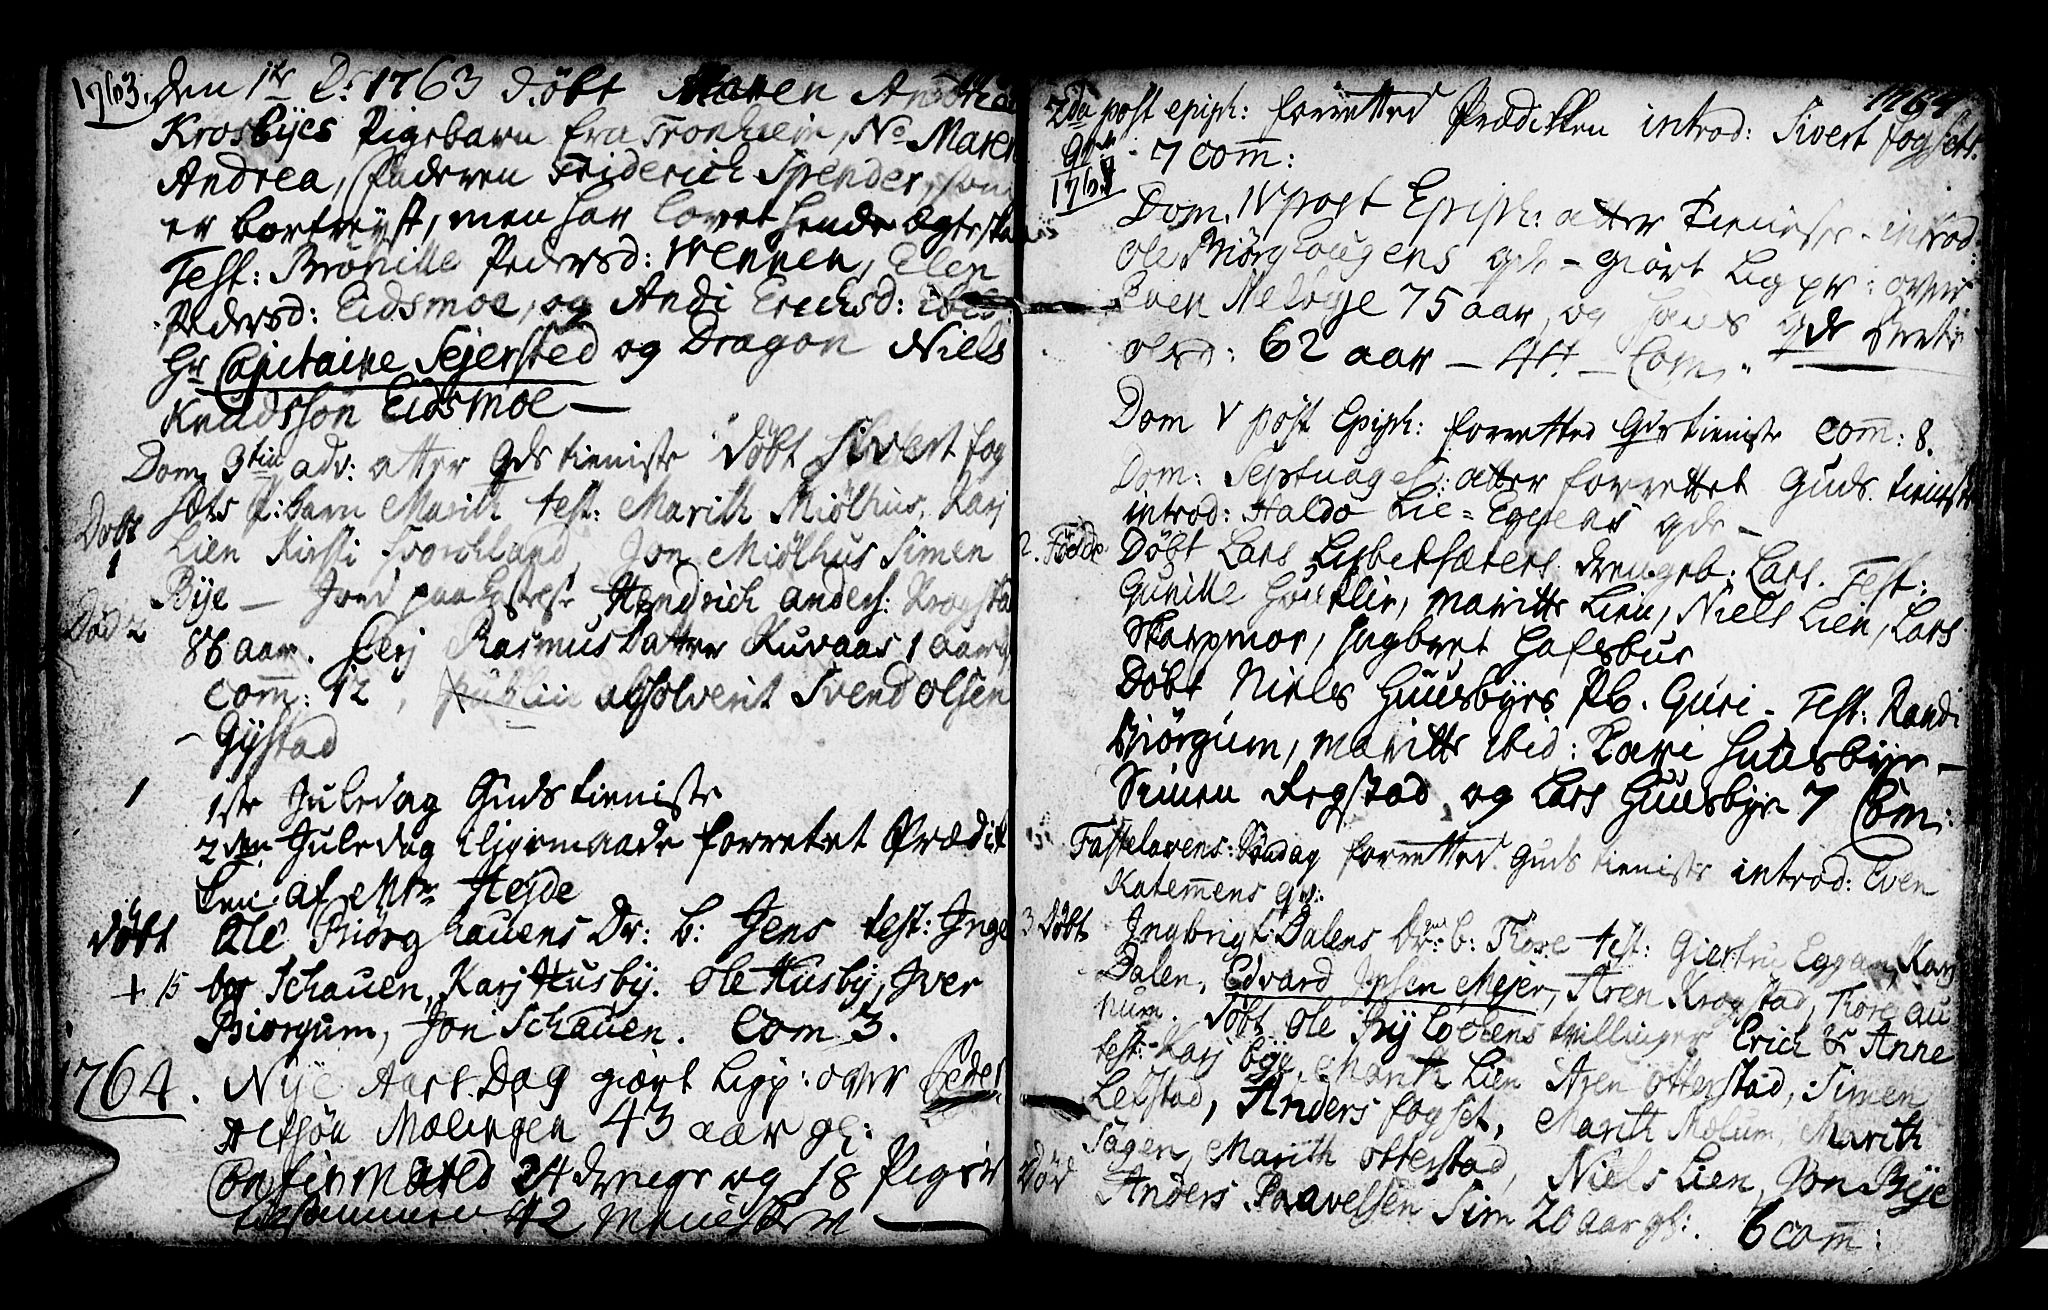 1763. Den 1te D: 1763 døbt Maren
Krosbyes Pigebarn fra Tronheim, No Maren
Andrea, Faderen Friderich Spender, som
er bortreyst, men har lovet hende Ægtesta
Test: Brønille Pedersd: Wennen, Elen
Pedersd: Eidsmoe, og Andi Erichsd: ibid.
Hr Capitaine Sejersted og Dragon Niels
Knudssøn Eidsmoe —
Dom 3tia adv: atter Gdstieniste Døbt Sivert Fog
sets P: barn Marith test: Marith Miølhus, Karj
Døbt
1
Lien Kirsti Jon Miølhus Simen
Bye — Jord paa Hendrich anders: Krogsta
Død 2
86 aar. Rasmusdatter Kuvaas 1 aar
Com̄: 12, publice absolverit Svend Olsen
Gystad
1
1ste Juledag Guds tieniste
2den Juledag ligemaade forrettet Prædik
ken af Mr Hejde
Døbt Ole Biørghauens Dr: b: Jens test: Inge
+ 15 bor Schauen, Karj Husby. Ole Husby, Iver
Biørgum, Jon Schauen. Com 3.
1764. Nye Aars Dag giort Ligp: over Peder
Alfsøn Mælingen 43 aar gl:
Confirmered 24 drenge og 18 Piger
tilsammen 42 Mennesker —
1764
2da post epiph: forretted Prædikken introd: Sivert Fogsets
7 com̄:
Dom. IV post Epiph: atter tieniste introd:
Ole Biørghougens qde — giort Ligpr: over
Even Neloye 75 aar, og hans qde Berete
Olsd: 62 aar — 44 — Com.
Dom V post Epiph: forretted Gdstieniste Com̄: 8.
Dom: Septuages: atter forrettet Guds tieniste
introd: Haldo Lie-Eggens qde —
2. Fødde Døbt Lars Lisbetsæters drengeb: Lars. Test:
Gunille Houtlir, Maritte Lien, Niels Lien, Lars
Skarpmor, Ingbret Hafsbur
Døbt Niels Huusbyes Pb. Guri — Test: Randi
Biørgum, Maritte ibid: Kari Huusbye —
Simen Regstad og Lars Huusbye 7 Com:
Fastelavens: Søndag forretted Guds tieniste introd: Even
Katemens qd:
3 Døbt Ingbrigt: Dalens Dr: b: Tore test: Giertru Eggan, Karj
Dalen, Edvard Ipsen Mejer, Aren Krogstad, Tore au
num. Døbt Ole tvillinger Erich & Anne
test: Karj Bye, Marith Lien Aren Otterstad, Simen
Lefstad, Anders Fogset, Marith Mælum, Marith
Sagen, Marith Otterstad, Niels Lien, Jon Bye
Død Anders Paavelsen Sim 20 aar gl: 6 com̄: